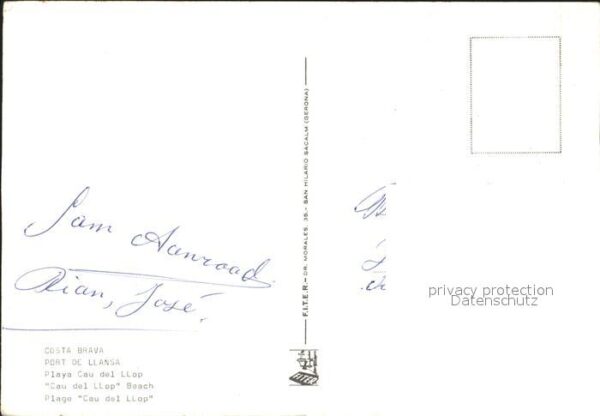 Fam Aanraad.
Rian, José.
COSTA BRAVA
PORT DE LLANSA
Playa Cau del LLop
"Cau del LLop" Beach
Plage "Cau del LLop"
F.I.T.E.R.- DR. MORALES, 35.- SAN HILARIO SACALM (GERONA)
privacy protection
Datenschutz